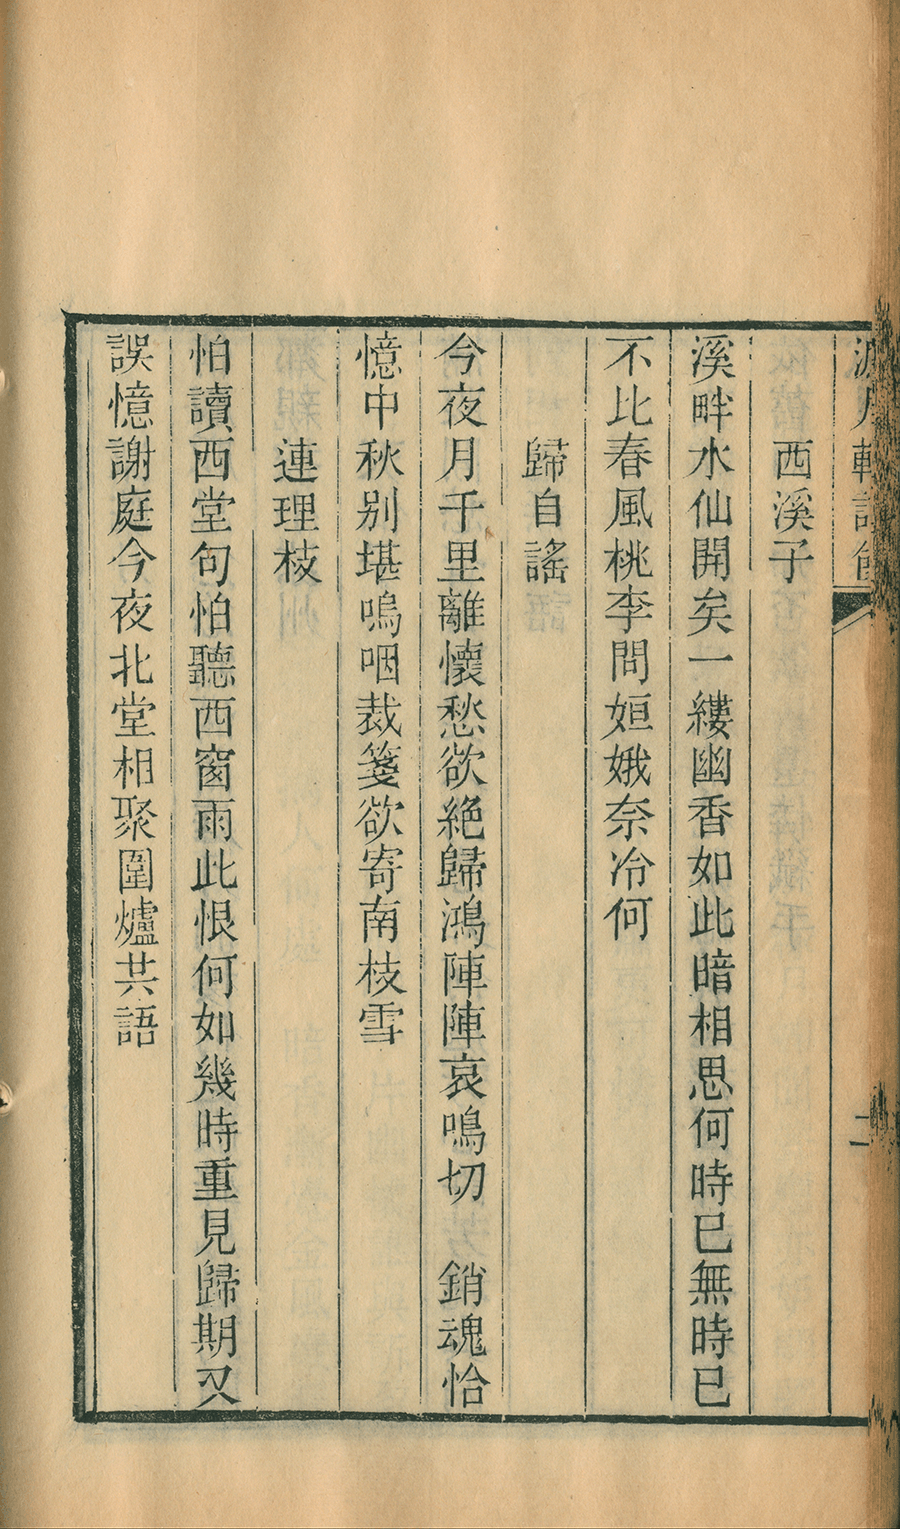 西溪子
溪畔水仙開矣一縷幽香如此暗相思何時已無時已
不比春風桃李問姮娥奈冷何
歸自謠
今夜月千里離懷愁欲絶歸鴻陣陣哀鳴切　銷魂恰
憶中秋别堪嗚咽裁箋欲寄南枝雪
連理枝
怕讀西堂句怕聽西窗雨此恨何如幾時重見歸期又
誤憶謝庭今夜北堂相聚圍爐共語